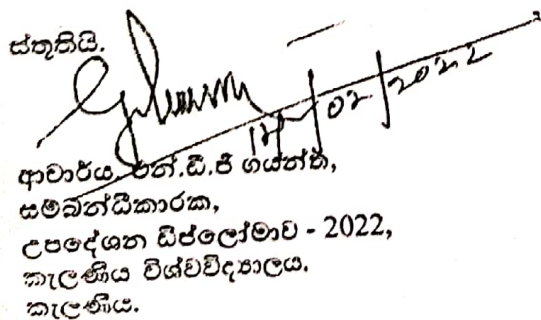 ස්තූතියි.
14/02/2022
ආචාර්ය එන්.ඩී.ජී ගයන්ත,
සම්බන්ධීකාරක,
උපදේශන ඩිප්ලෝමාව - 2022,
කැලණිය විශ්වවිද්‍යාලය.
කැලණිය.